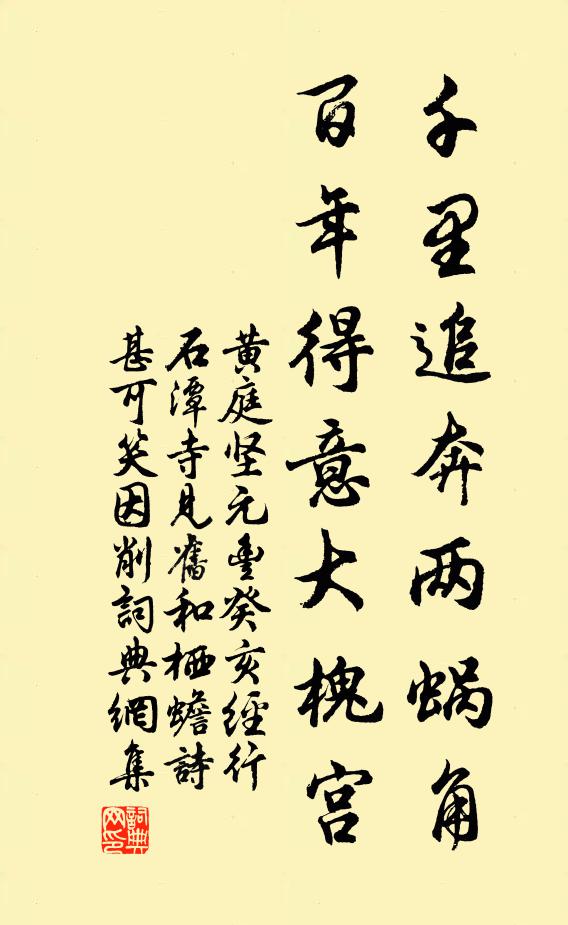 千里追奔两蜗角
百年得意大槐宫
黄庭坚元豊癸亥經行
石潭寺見舊和栖蟾詩
甚可笑因削詞典網集
詞典网印